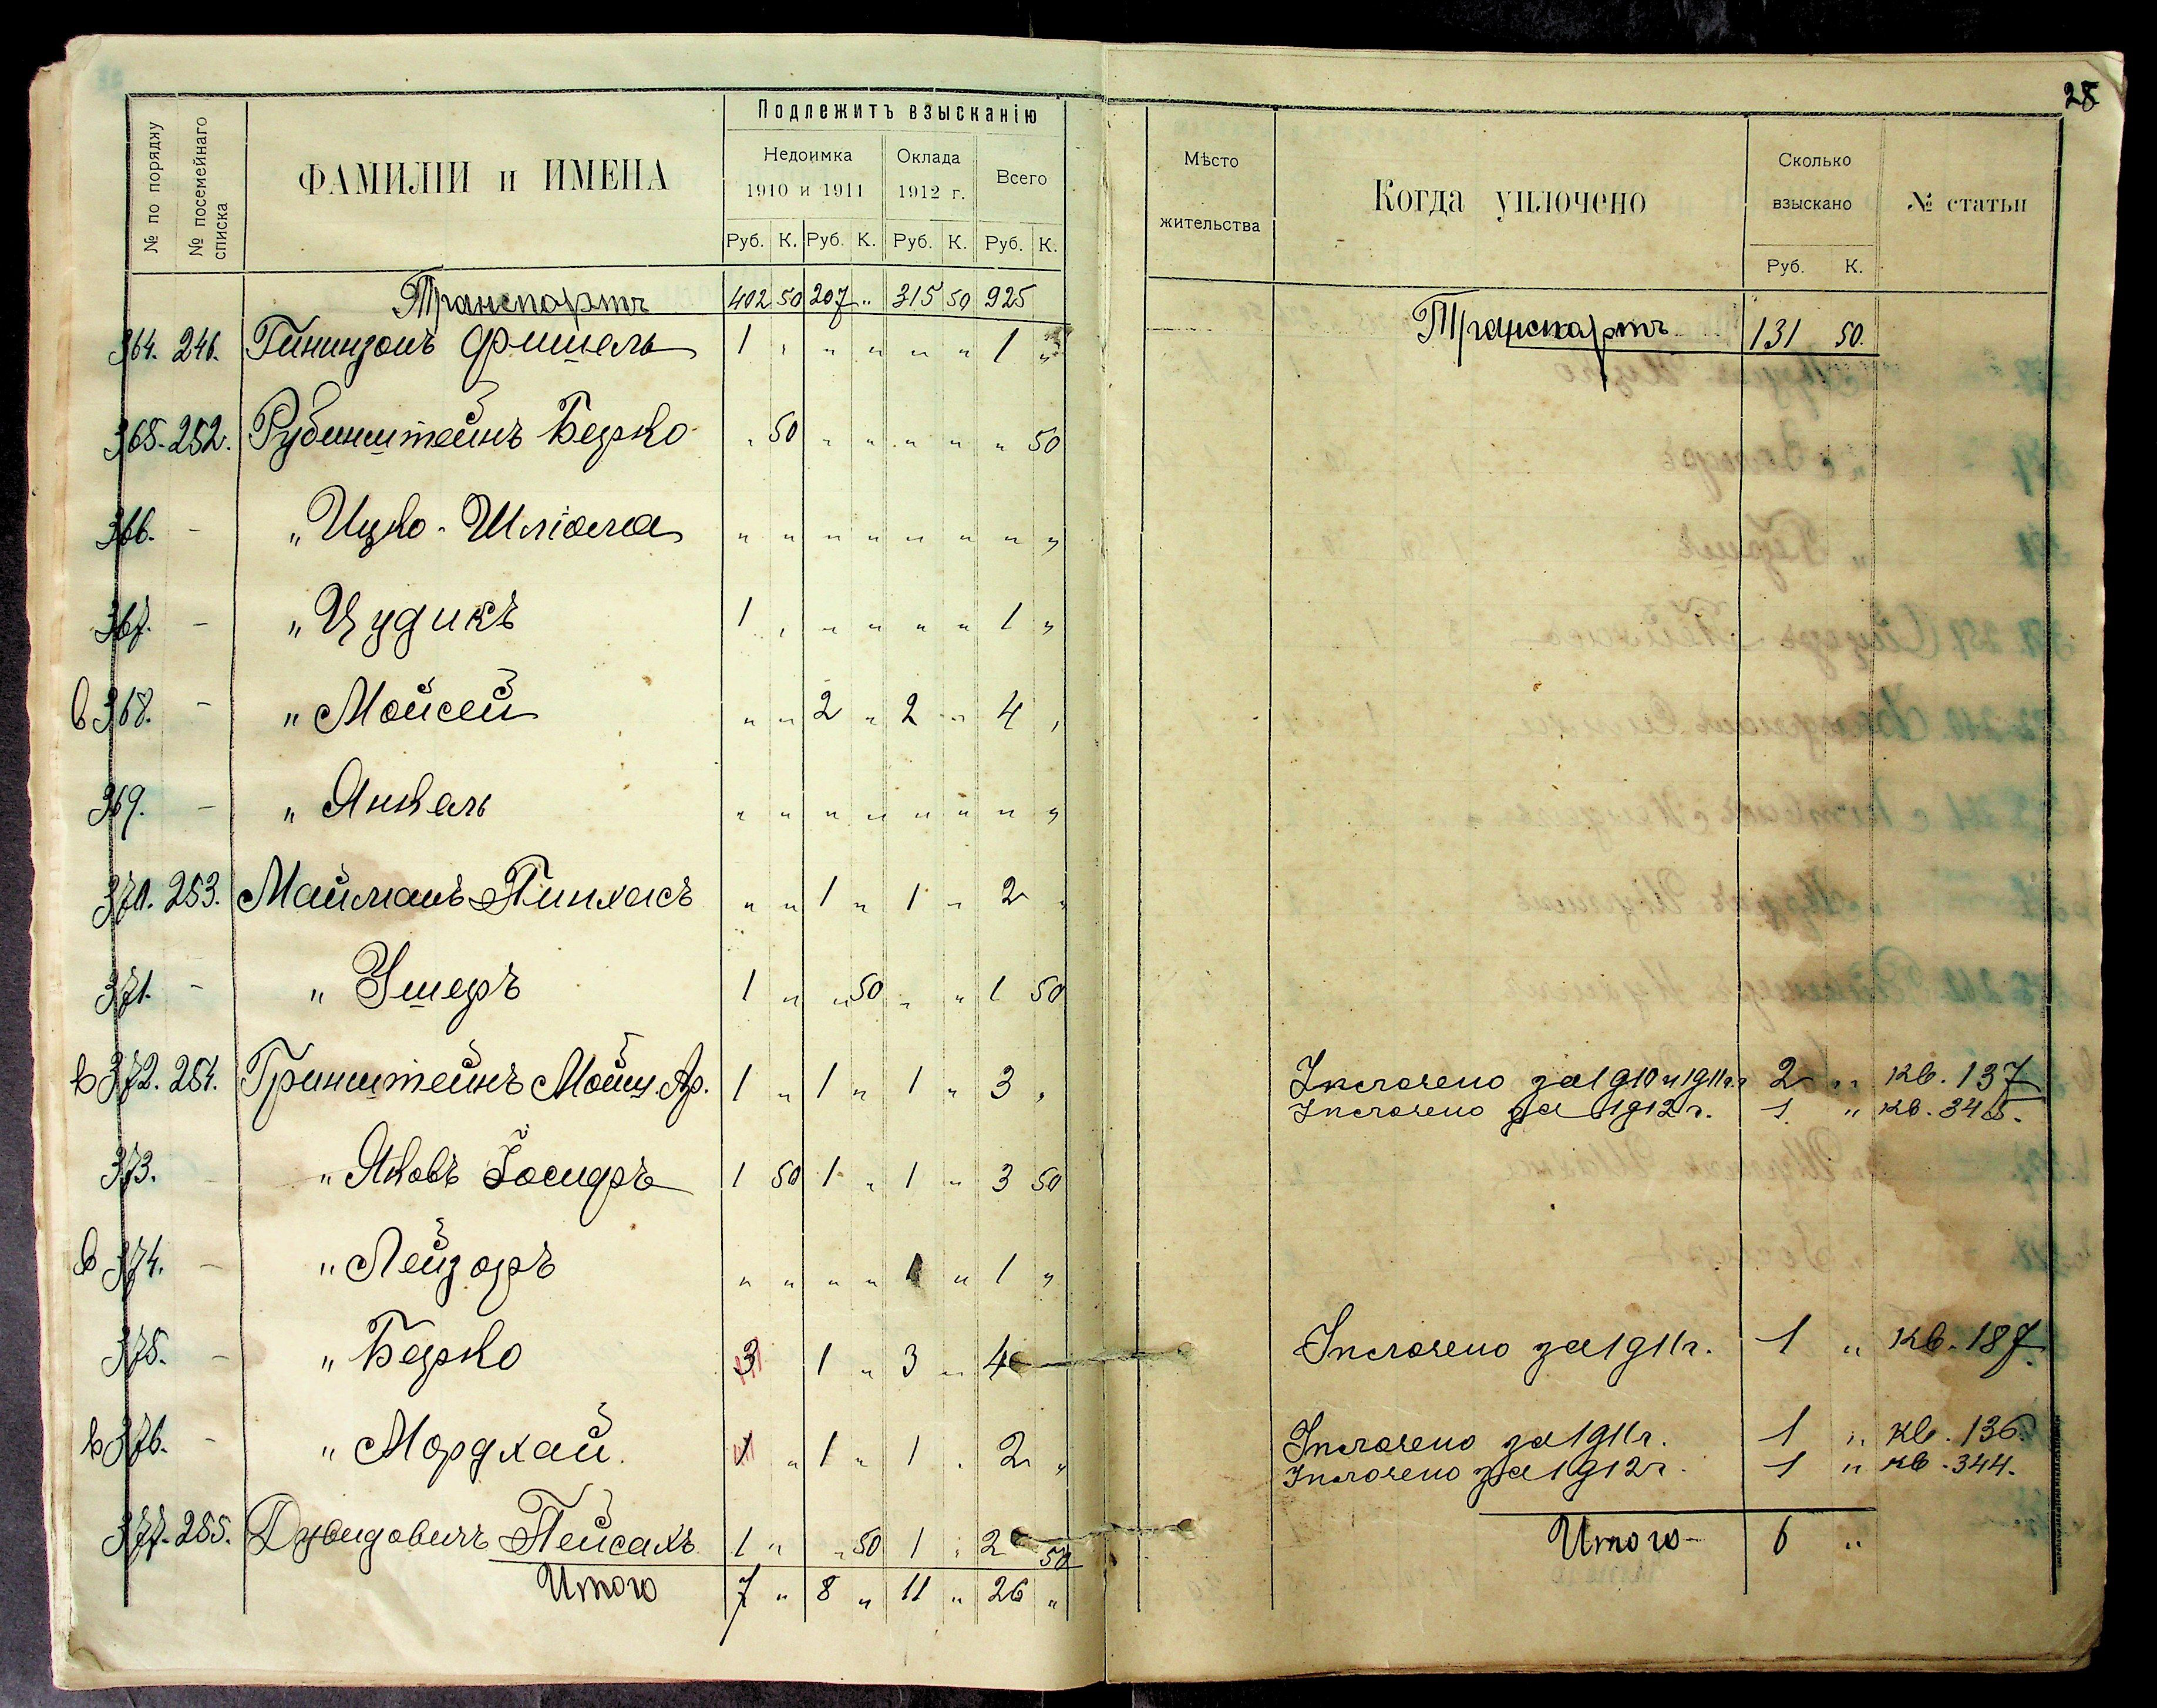 28
№ по порядку
№ посемейнаго списка
ФАМИЛІИ и ИМЕНА
Подлежитъ взысканію
Недоимка 1910 и 1911
Оклада 1912 г.
Всего
Руб. К. Руб. К. Руб. К. Руб. К.
Мѣсто жительства
Когда уплочено
Сколько взыскано
Руб. К.
№ статьи
Транспортъ 402 50 207 " 315 50 925
Транспортъ 131 50.
364. 246. Гининзонъ Фишель 1 " " " " " 1 "
365. 252. Рубинштейнъ Берко " 50 " " " " " 50
366. - " Ицко-Шліома " " " " " " " "
367. - " Цудикъ 1 " " " " " 1 "
в 368. - " Мойсей " " 2 " 2 " 4 "
369. - " Янкель " " " " " " " "
370. 253. Майманъ Пинхасъ " " 1 " 1 " 2 "
371. - " Ушеръ 1 " " 50 " " 1 50
в 372. 254. Гринштейнъ Мойш. Ар. 1 " 1 " 1 " 3 "
373. " Яковъ Іосифъ 1 50 1 " 1 " 3 50
в 374. - " Лейзоръ " " " " 1 " 1 "
375. - " Берко 3 1 " 3 " 4
в 376. - " Мордхай. 1 " 1 " 1 " 2 "
377. 255. Дувидовичъ Пейсахъ 1 " " 50 1 " 2 50
Итого 7 " 8 " 11 " 26 "
Уплочено за 1910 и 1911 г. 2 " кв. 137
Уплочено за 1912 г. 1. " кв. 345.
Уплочено за 1911 г. 1 " кв. 187.
Уплочено за 1911 г. 1 " кв. 136.
Уплочено за 1912 г. 1 " кв. 344.
Итого 6 "